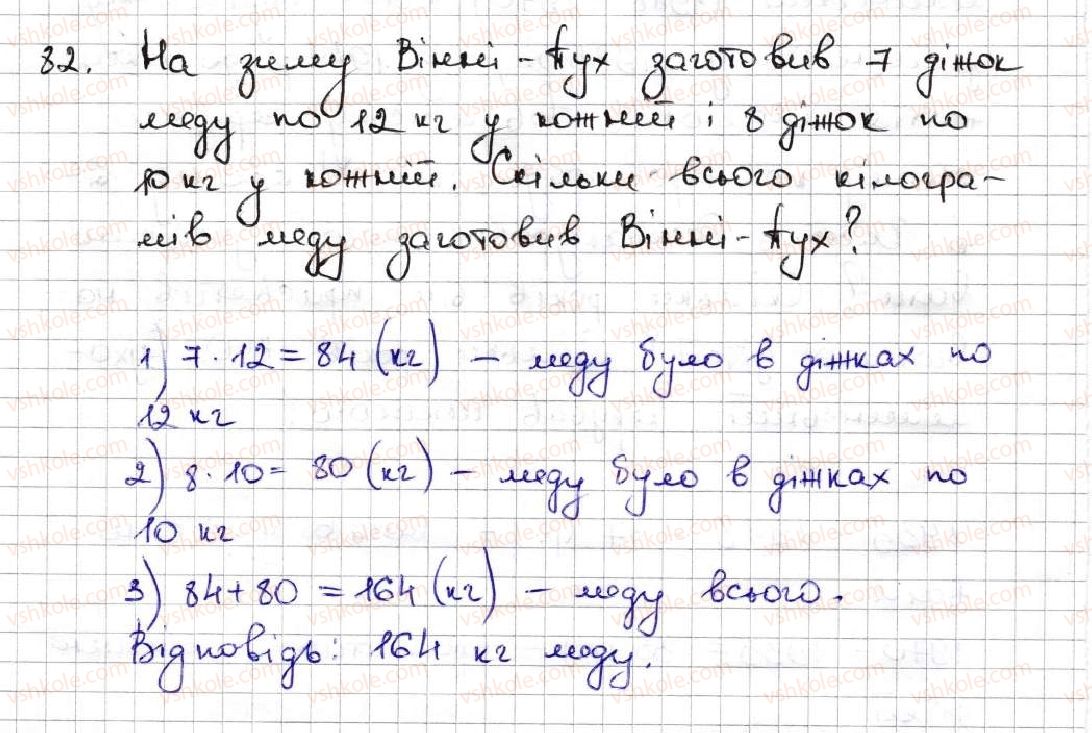 82. На зиму Вінні-Пух заготовив 7 діжок
меду по 12 кг у кожній і 8 діжок по
10 кг у кожній. Скільки всього кілогра-
мів меду заготовив Вінні-Пух?
1) 7 · 12 = 84 (кг) – меду було в діжках по
12 кг
2) 8 · 10 = 80 (кг) – меду було в діжках по
10 кг
3) 84 + 80 = 164 (кг) – меду всього.
Відповідь: 164 кг меду.